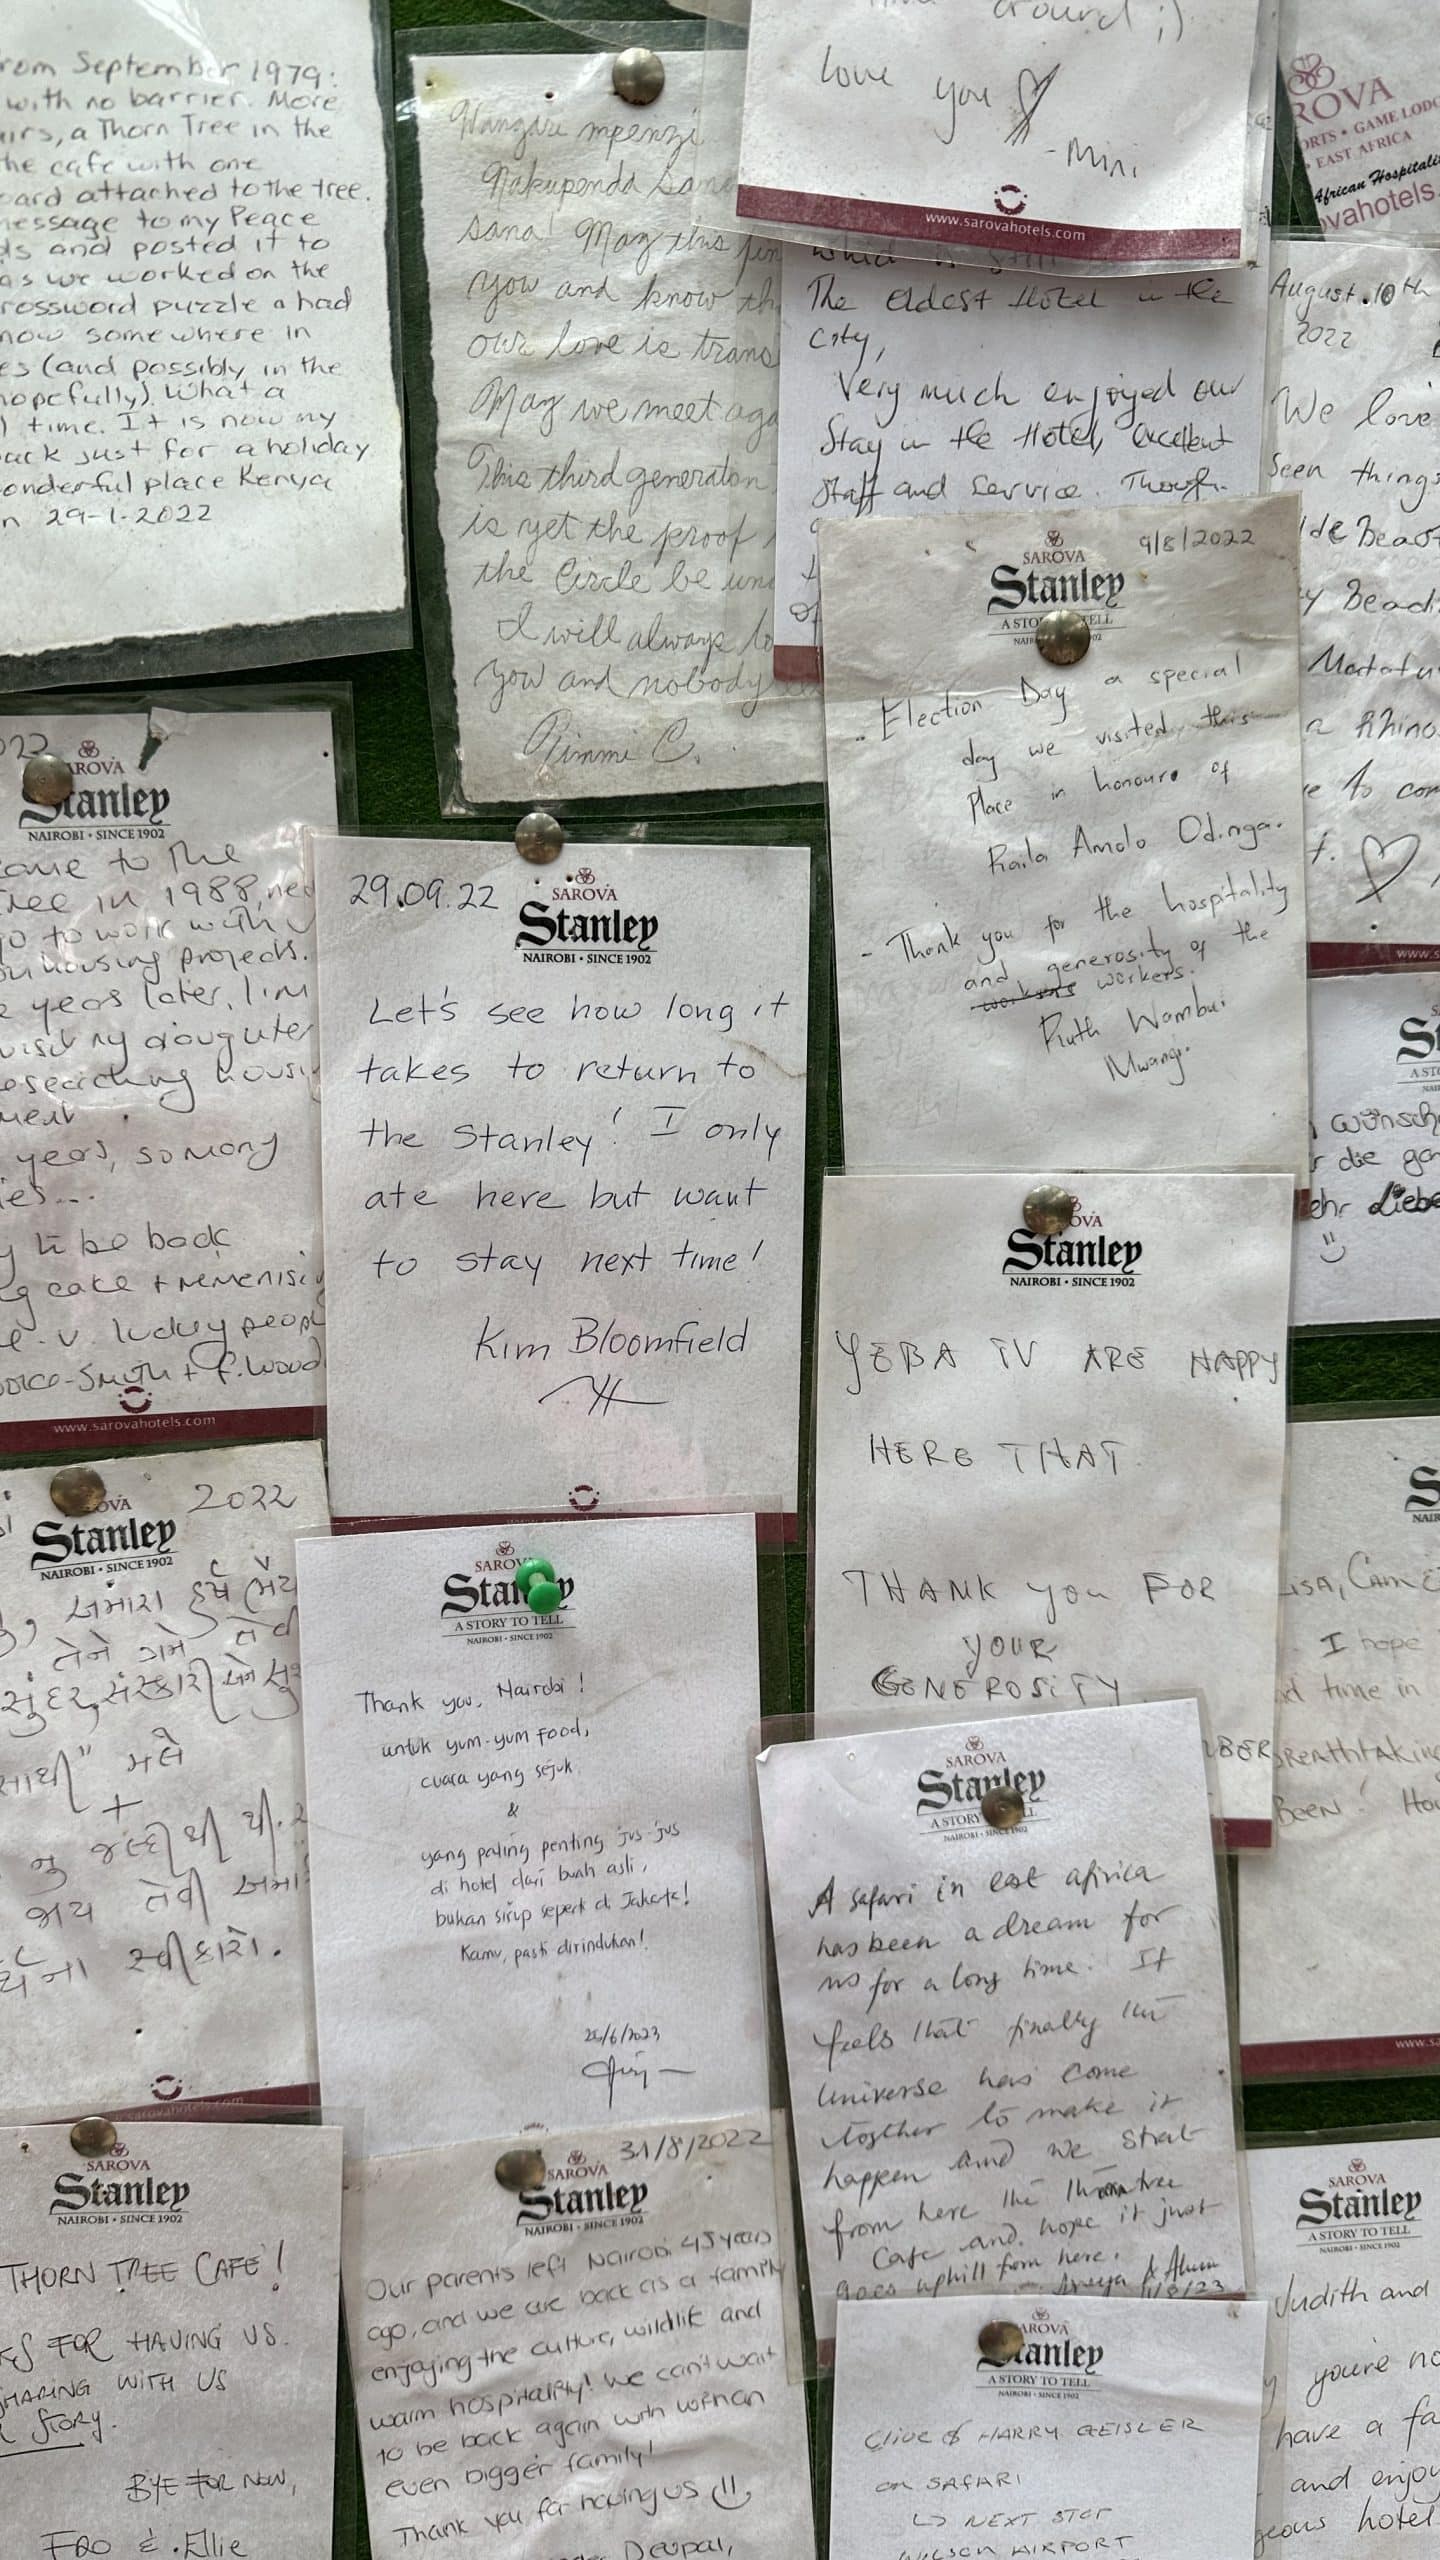 from September 1979:
with no barrier. More
airs, a Thorn Tree in the
the cafe with one
board attached to the tree.
message to my Peace
and posted it to
as we worked on the
crossword puzzle a had
now somewhere in
(and possibly in the
hopefully). What a
time. It is now my
back just for a holiday
wonderful place Kenya
29-1-2022
Wangari mpenzi
Nakupenda sana
sana! May this fin
you and know th
our love is trans
May we meet aga
This third generation
is yet the proof
the Circle be un
I will always lo
you and nobody
Pimmi C.
around ;)
love you ♡
-Mini
www.sarovahotels.com
which is still
The oldest Hotel in the
City,
Very much enjoyed our
Stay in the Hotel, excellent
Staff and service. Though
of
SAROVA
ORTS • GAME LODG
EAST AFRICA
African Hospitali
ovahotels.
August 10th
2022
We love
seen things
lde Beast
y Beads
Matatu
a Rhino
e to com
t. ♡
www
9/8/2022
SAROVA
Stanley
A STORY TO TELL
NAIROBI • SINCE 1902
- Election Day a special
day we visited this
Place in honour of
Raila Amolo Odinga.
- Thank you for the hospitality
and generosity of the
workers workers.
Ruth Wambui
Mwangi.
022
SAROVA
Stanley
NAIROBI • SINCE 1902
came to the
Tree in 1988,
go to work with
on housing projects.
years later, I'm
visit my daughter
researching housi
ment
years, so many
ies...
to be back
cake + remenisi
v. lucky people
-Smith + F. Wood
www.sarovahotels.com
29.09.22
SAROVA
Stanley
NAIROBI • SINCE 1902
Let's see how long it
takes to return to
the Stanley! I only
ate here but want
to stay next time!
Kim Bloomfield
SAROVA
Stanley
NAIROBI • SINCE 1902
YEBA TV ARE HAPPY
HERE THAT
THANK you FOR
YOUR
GENEROSITY
BER
St
A STO
NAI
wünsch
die ga
ehr Liebe
2022
SAROVA
Stanley
NAIROBI • SINCE 1902
અમારા
તેને ગમે તેવી
સુંદર, સંસ્કારી
સાથી" મલે
+
જલ્દી થી
જાય તેવી અમા
સ્વીકારો.
sarovahotels.com
SAROVA
Stanley
A STORY TO TELL
NAIROBI • SINCE 1902
Thank you, Nairobi!
untuk yum-yum food,
cuaca yang sejuk
&
yang paling penting jus-jus
di hotel dari buah asli,
bukan sirup seperti di Jakarta!
Kamu, pasti dirindukan!
26/6/2023
SAROVA
Stanley
A STORY TO TELL
NAIROBI • SINCE 1902
A safari in east africa
has been a dream for
us for a long time. It
feels that finally the
universe has come
together to make it
happen and we start
from here the thorntree
Cafe and hope it just
goes uphill from here.
11/8/23
S
NAIR
LISA, CAM
I hope
nd time in
BREATHTAKING
BEEN! How
www.sa
SAROVA
Stanley
NAIROBI • SINCE 1902
THORN TREE CAFE!
FOR HAVING US.
SHARING WITH US
STORY.
BYE FOR NOW,
& Ellie
31/8/2022
SAROVA
Stanley
NAIROBI • SINCE 1902
Our parents left Nairobi 45 years
ago, and we are back as a family
enjoying the culture, wildlife and
warm hospitality! We can't wait
to be back again with with an
even bigger family!
Thank you for having us
Deupal,
SAROVA
Stanley
A STORY TO TELL
NAIROBI • SINCE 1902
Clive & HARRY GEISLER
on SAFARI
↳ NEXT STOP
WILSON AIRPORT
SAROVA
Stanley
A STORY TO TELL
NAIROBI • SINCE 1902
Judith and
you're no
have a fa
and enjoy
geous hotel